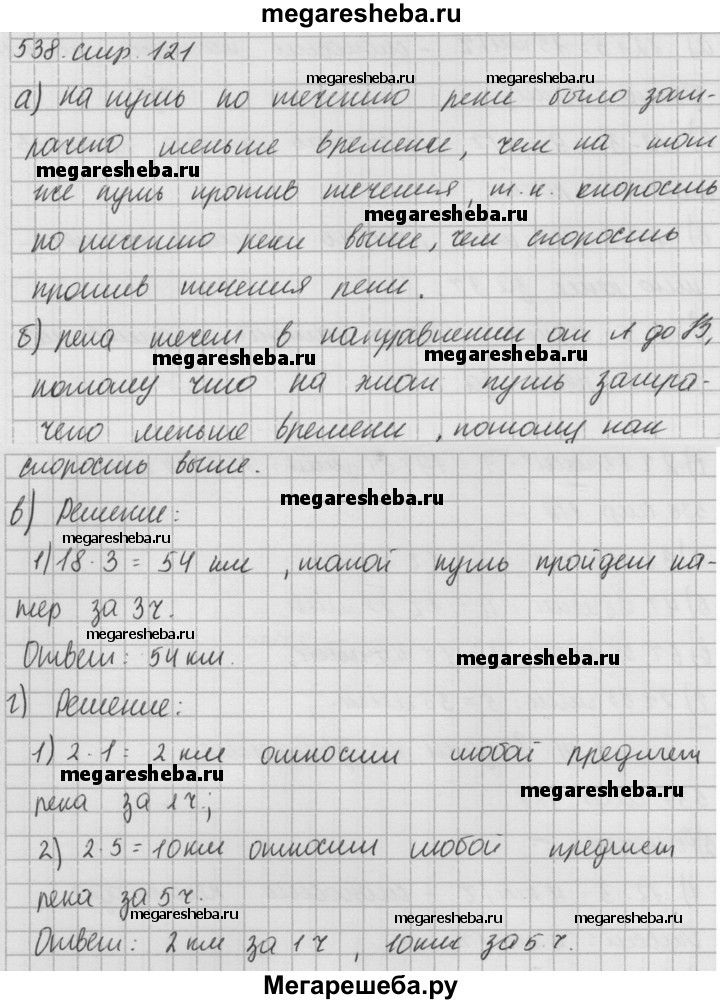 megaresheba.ru
538. стр. 121
megaresheba.ru
а) на путь по течению реки было зат-
рачено меньше времени, чем на том
megaresheba.ru
же путь против течения, т. к. скорость
megaresheba.ru
по течению реки выше, чем скорость
против течения реки.
б) река течет в направлении от А до В,
megaresheba.ru megaresheba.ru
потому что на этот путь затра-
чено меньше времени, потому как
скорость выше.
megaresheba.ru
в) Решение:
megaresheba.ru
1) 18 · 3 = 54 км, такой путь пройдет ка-
тер за 3 ч.
megaresheba.ru
Ответ: 54 км.
megaresheba.ru
г) Решение:
1) 2 · 1 = 2 км относит любой предмет
megaresheba.ru
река за 1 ч.;
megaresheba.ru
2) 2 · 5 = 10 км относит любой предмет
река за 5 ч.
megaresheba.ru megaresheba.ru megaresheba.ru
Ответ: 2 км за 1 ч, 10 км за 5 ч.
Мегарешеба.ру